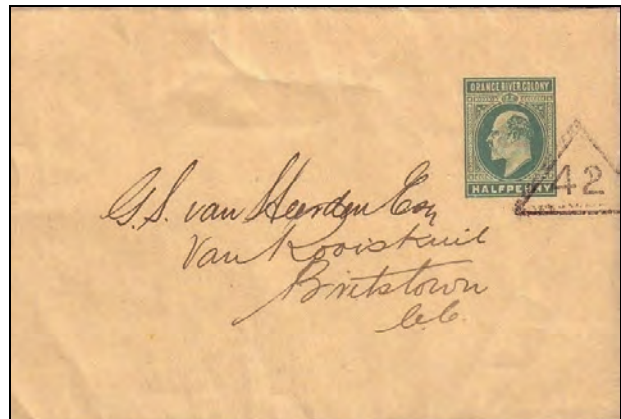 ORANGE RIVER COLONY
HALFPENNY
42
G. S. van Heerden Esq
Van Rooiskuil
Britstown
C.C.